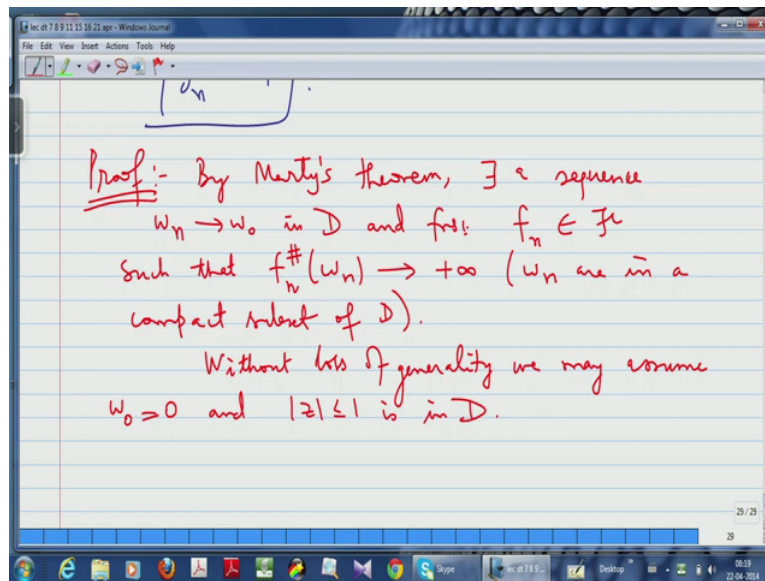 lec dt 7 8 9 11 15 16 21 apr - Windows Journal
File Edit View Insert Actions Tools Help
Proof:- By Marty's theorem, ∃ a sequence
w_n → w_0 in D and f_n ∈ ℱ
such that f_n^#(w_n) → +∞ (w_n are in a
compact subset of D).
Without loss of generality we may assume
w_0 = 0 and |z| ≤ 1 is in D.
29/29
29
Skype
lec dt 7 8 9...
Desktop
08:19
22-04-2014